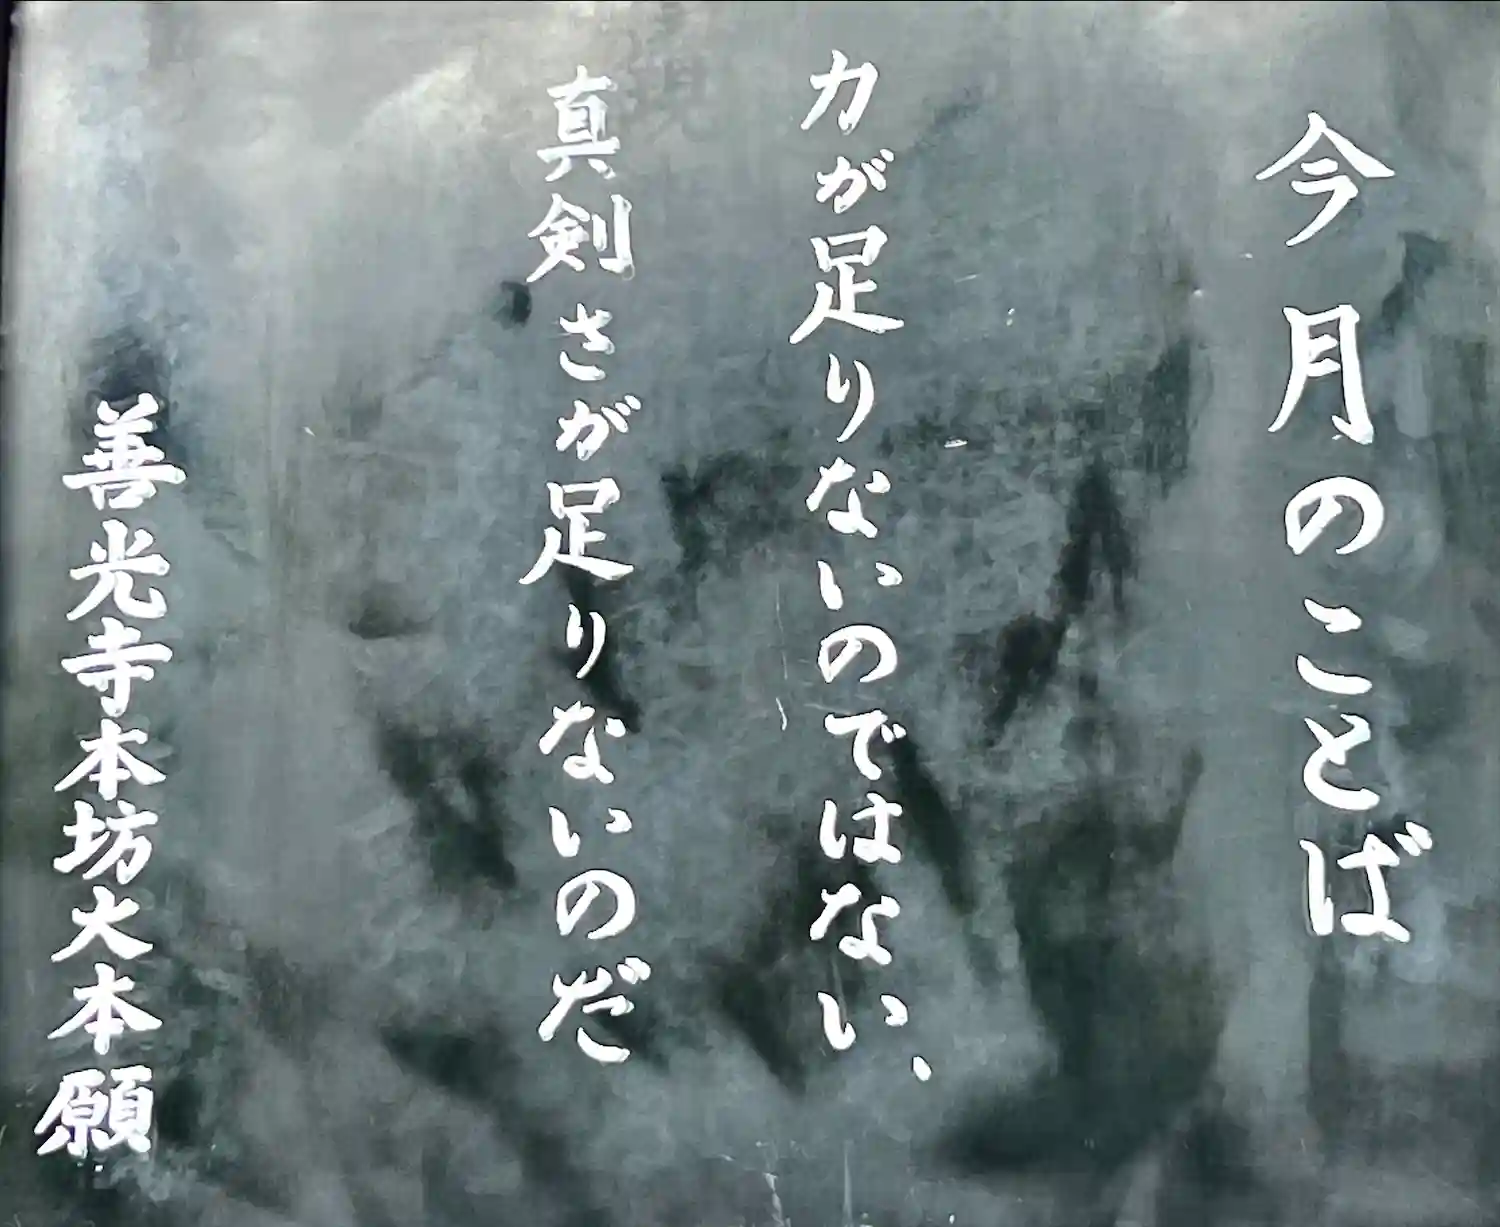 今月のことば
力が足りないのではない、
真剣さが足りないのだ
善光寺本坊大本願